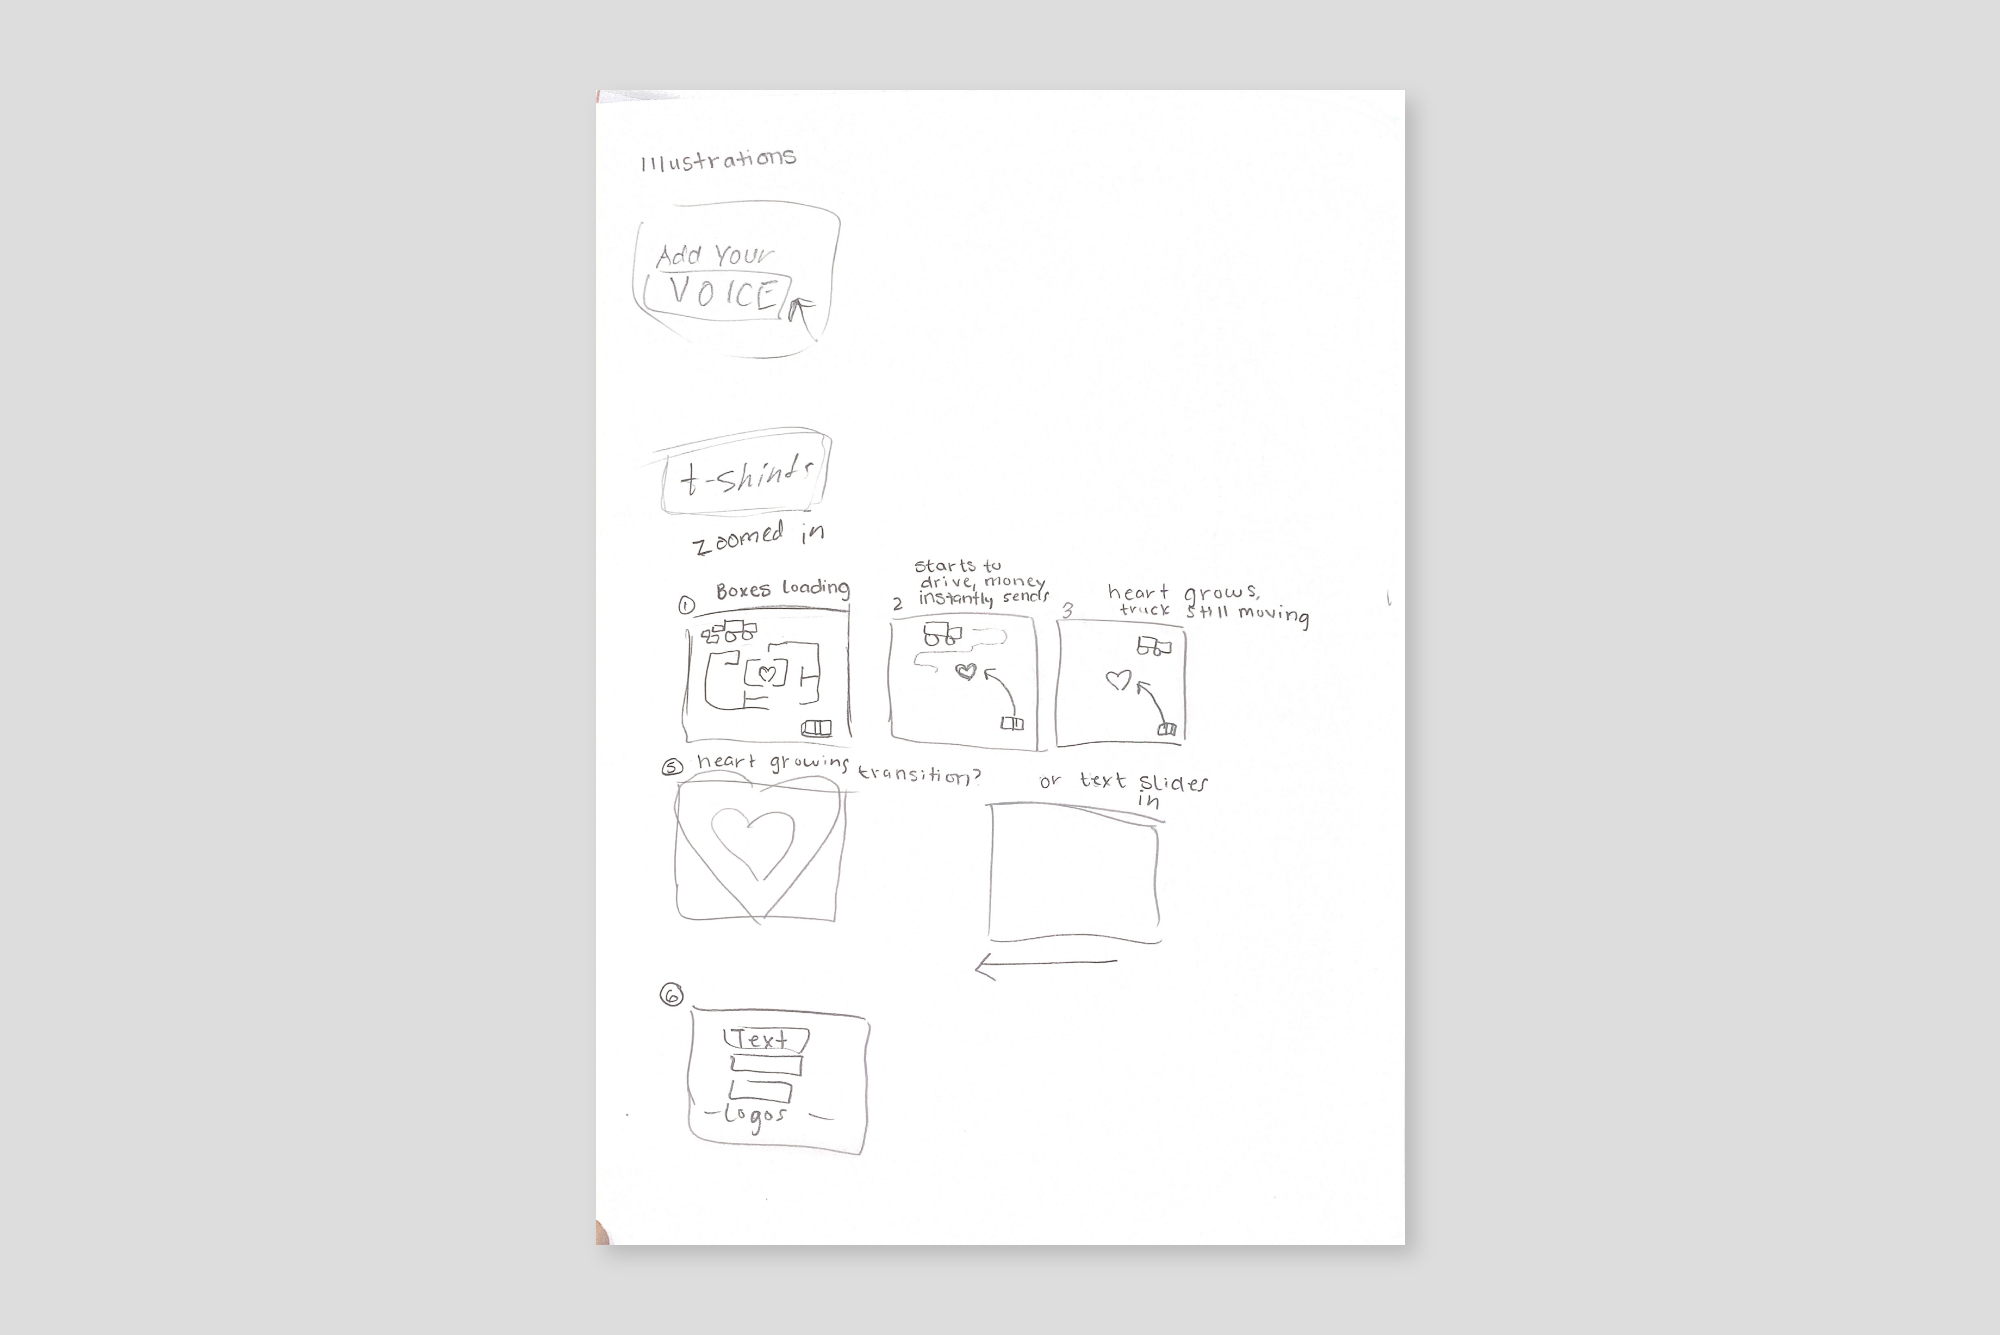 Illustrations
Add Your
VOICE
t-shirts
zoomed in
① Boxes loading
2 starts to
drive, money
instantly sends
3 heart grows,
truck still moving
⑤ heart growing transition?
or text slides
in
⑥
Text
Logos